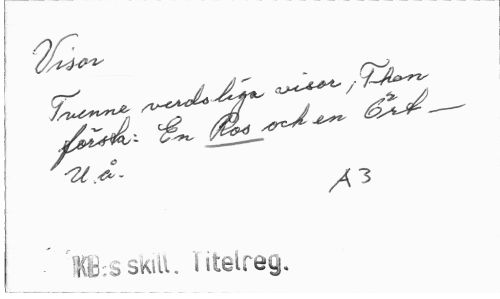 Visor
Tvenne verdsliga visor, Then
första: En Ros och en Ört —
U. å.
A3
KB:s skill. Titelreg.